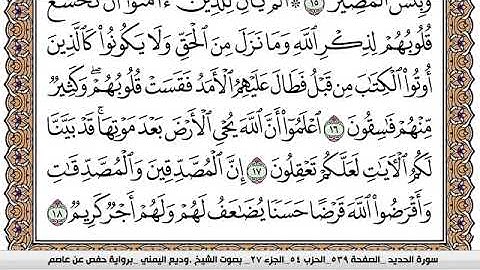 وَبِئۡسَ ٱلۡمَصِيرُ ١٥ ۞ أَلَمۡ يَأۡنِ لِلَّذِينَ ءَامَنُوٓاْ أَن تَخۡشَعَ
قُلُوبُهُمۡ لِذِكۡرِ ٱللَّهِ وَمَا نَزَلَ مِنَ ٱلۡحَقِّ وَلَا يَكُونُواْ كَٱلَّذِينَ
أُوتُواْ ٱلۡكِتَٰبَ مِن قَبۡلُ فَطَالَ عَلَيۡهِمُ ٱلۡأَمَدُ فَقَسَتۡ قُلُوبُهُمۡۖ وَكَثِيرٞ
مِّنۡهُمۡ فَٰسِقُونَ ١٦ ٱعۡلَمُوٓاْ أَنَّ ٱللَّهَ يُحۡيِ ٱلۡأَرۡضَ بَعۡدَ مَوۡتِهَاۚ قَدۡ بَيَّنَّا
لَكُمُ ٱلۡأٓيَٰتِ لَعَلَّكُمۡ تَعۡقِلُونَ ١٧ إِنَّ ٱلۡمُصَّدِّقِينَ وَٱلۡمُصَّدِّقَٰتِ
وَأَقۡرَضُواْ ٱللَّهَ قَرۡضًا حَسَنٗا يُضَٰعَفُ لَهُمۡ وَلَهُمۡ أَجۡرٞ كَرِيمٞ ١٨
سورة الحديد _الصفحة ٥٣٩_ الحزب ٥٤_ الجزء ٢٧_ بصوت الشيخ _وديع اليمني _برواية حفص عن عاصم